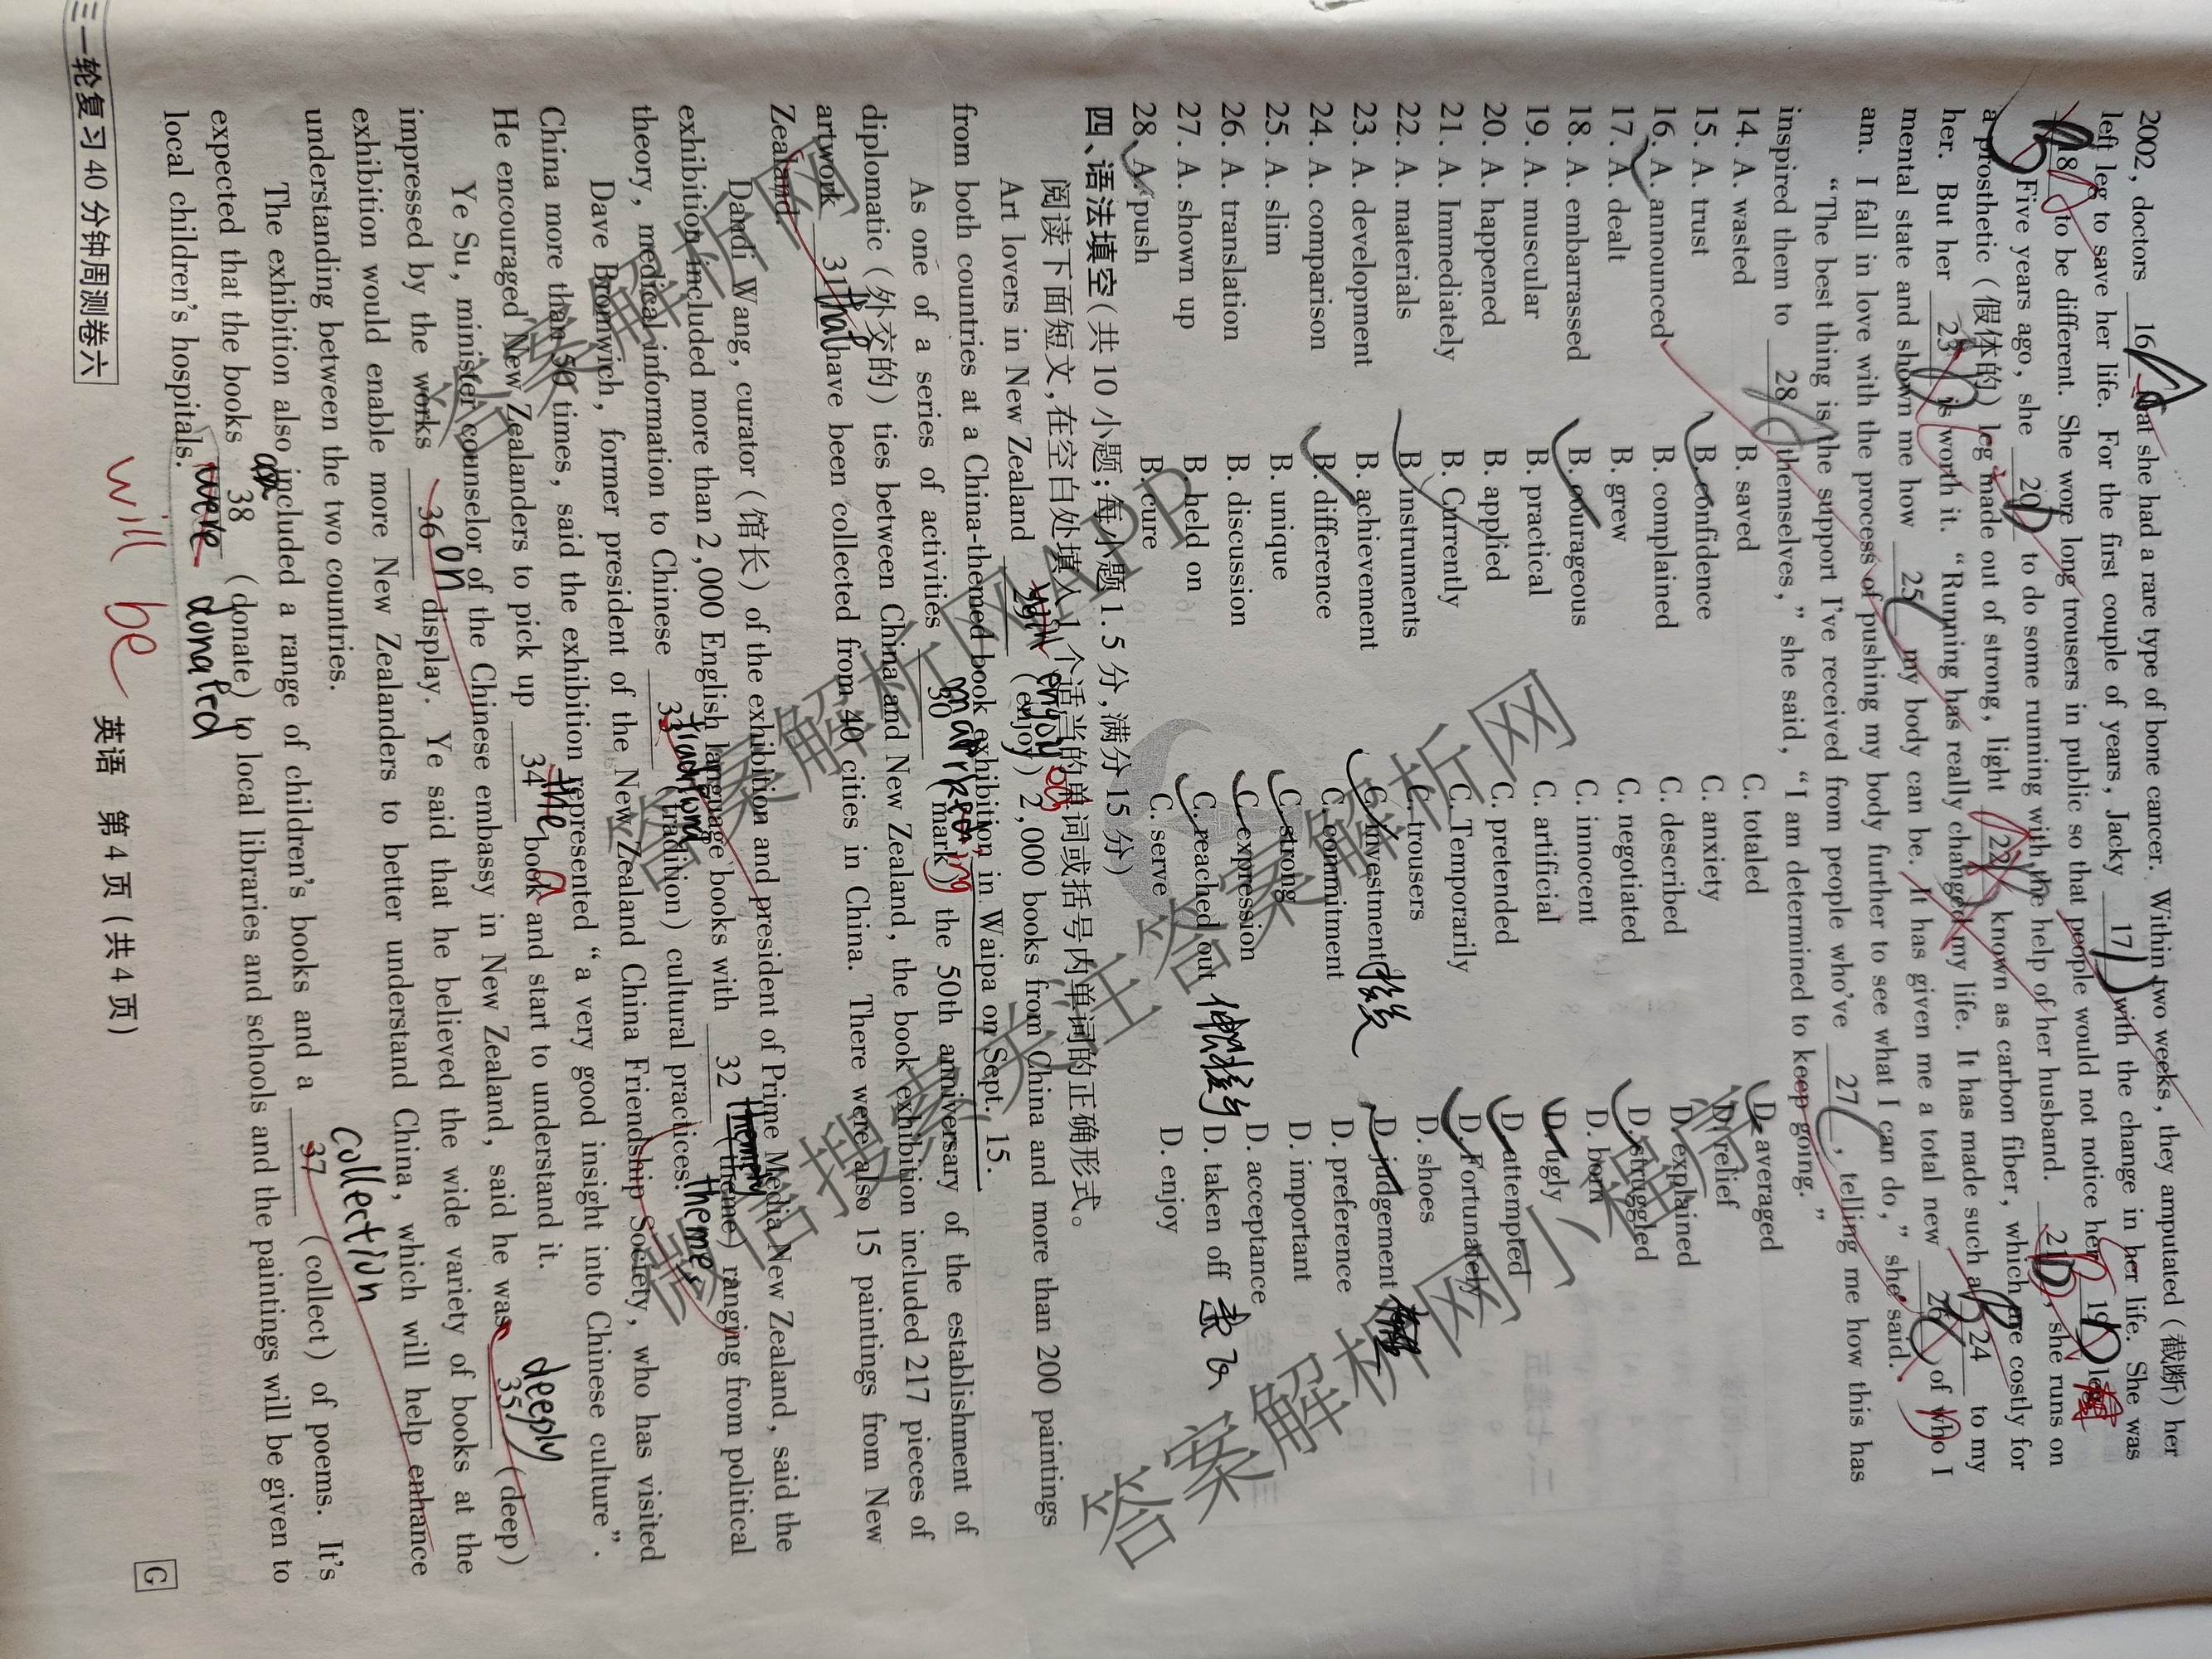 2002, doctors 16 that she had a rare type of bone cancer. Within two weeks, they amputated (截断) her
left leg to save her life. For the first couple of years, Jacky 17 with the change in her life. She was
18 to be different. She wore long trousers in public so that people would not notice her 19 leg.
Five years ago, she 20 to do some running with the help of her husband. 21 D, she runs on
a prosthetic (假体的) leg made out of strong, light 22 known as carbon fiber, which are costly for
her. But her 23 is worth it. “Running has really changed my life. It has made such a 24 to my
mental state and shown me how 25 my body can be. It has given me a total new 26 of who I
am. I fall in love with the process of pushing my body further to see what I can do,” she said.
“The best thing is the support I've received from people who've 27, telling me how this has
inspired them to 28 themselves,” she said, “I am determined to keep going.”
14. A. wasted B. saved C. totaled D. averaged
15. A. trust B. confidence C. anxiety D. relief
16. A. announced B. complained C. described D. explained
17. A. dealt B. grew C. negotiated D. struggled
18. A. embarrassed B. courageous C. innocent D. born
19. A. muscular B. practical C. artificial D. ugly
20. A. happened B. applied C. pretended D. attempted
21. A. Immediately B. Currently C. Temporarily D. Fortunately
22. A. materials B. instruments C. trousers D. shoes
23. A. development B. achievement C. investment D. judgement
24. A. comparison B. difference C. commitment D. preference
25. A. slim B. unique C. strong D. important
26. A. translation B. discussion C. expression D. acceptance
27. A. shown up B. held on C. reached out D. taken off 起飞
28. A. push B. cure C. serve D. enjoy
四、语法填空(共10小题;每小题1.5分,满分15分)
阅读下面短文,在空白处填入1个适当的单词或括号内单词的正确形式。
Art lovers in New Zealand 29 enjoy ed (enjoy) 2,000 books from China and more than 200 paintings
from both countries at a China-themed book exhibition in Waipa on Sept. 15.
As one of a series of activities 30 marked ing (mark) the 50th anniversary of the establishment of
diplomatic (外交的) ties between China and New Zealand, the book exhibition included 217 pieces of
artwork 31 that have been collected from 40 cities in China. There were also 15 paintings from New
Zealand.
Dandi Wang, curator (馆长) of the exhibition and president of Prime Media New Zealand, said the
exhibition included more than 2,000 English language books with 32 themes (theme) ranging from political
theory, medical information to Chinese 33 (tradition) cultural practices.
Dave Bromwich, former president of the New Zealand China Friendship Society, who has visited
China more than 50 times, said the exhibition represented “a very good insight into Chinese culture”.
He encouraged New Zealanders to pick up 34 the a book and start to understand it.
Ye Su, minister counselor of the Chinese embassy in New Zealand, said he was 35 deeply (deep)
impressed by the works 36 on display. Ye said that he believed the wide variety of books at the
exhibition would enable more New Zealanders to better understand China, which will help enhance
understanding between the two countries.
The exhibition also included a range of children's books and a 37 collection (collect) of poems. It's
expected that the books 38 were donated (donate) to local libraries and schools and the paintings will be given to
local children's hospitals.
will be
三一轮复习40分钟周测卷六 英语 第4页(共4页) G
答案解析网
答案解析网APP